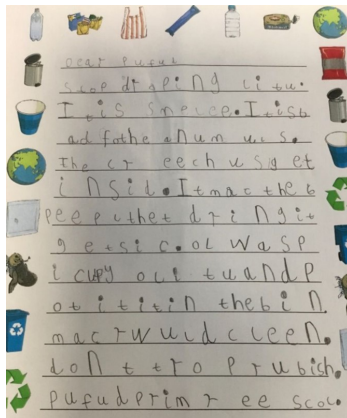 Dear pufut
stop droping litu.
It is snelce. It is b
ad fo the anumuls.
The cr eech u s g et
i n s i d. It mac the b
peepul thet d r i n g it
g e t s i c. ol w a s p
i c u p y o l i t u a n d p
ot it i t i n the b i n.
m a c r w u l d c l e e n.
d o n t t r o p r u b i s h.
p u f u d p r i m r ee s c o l.